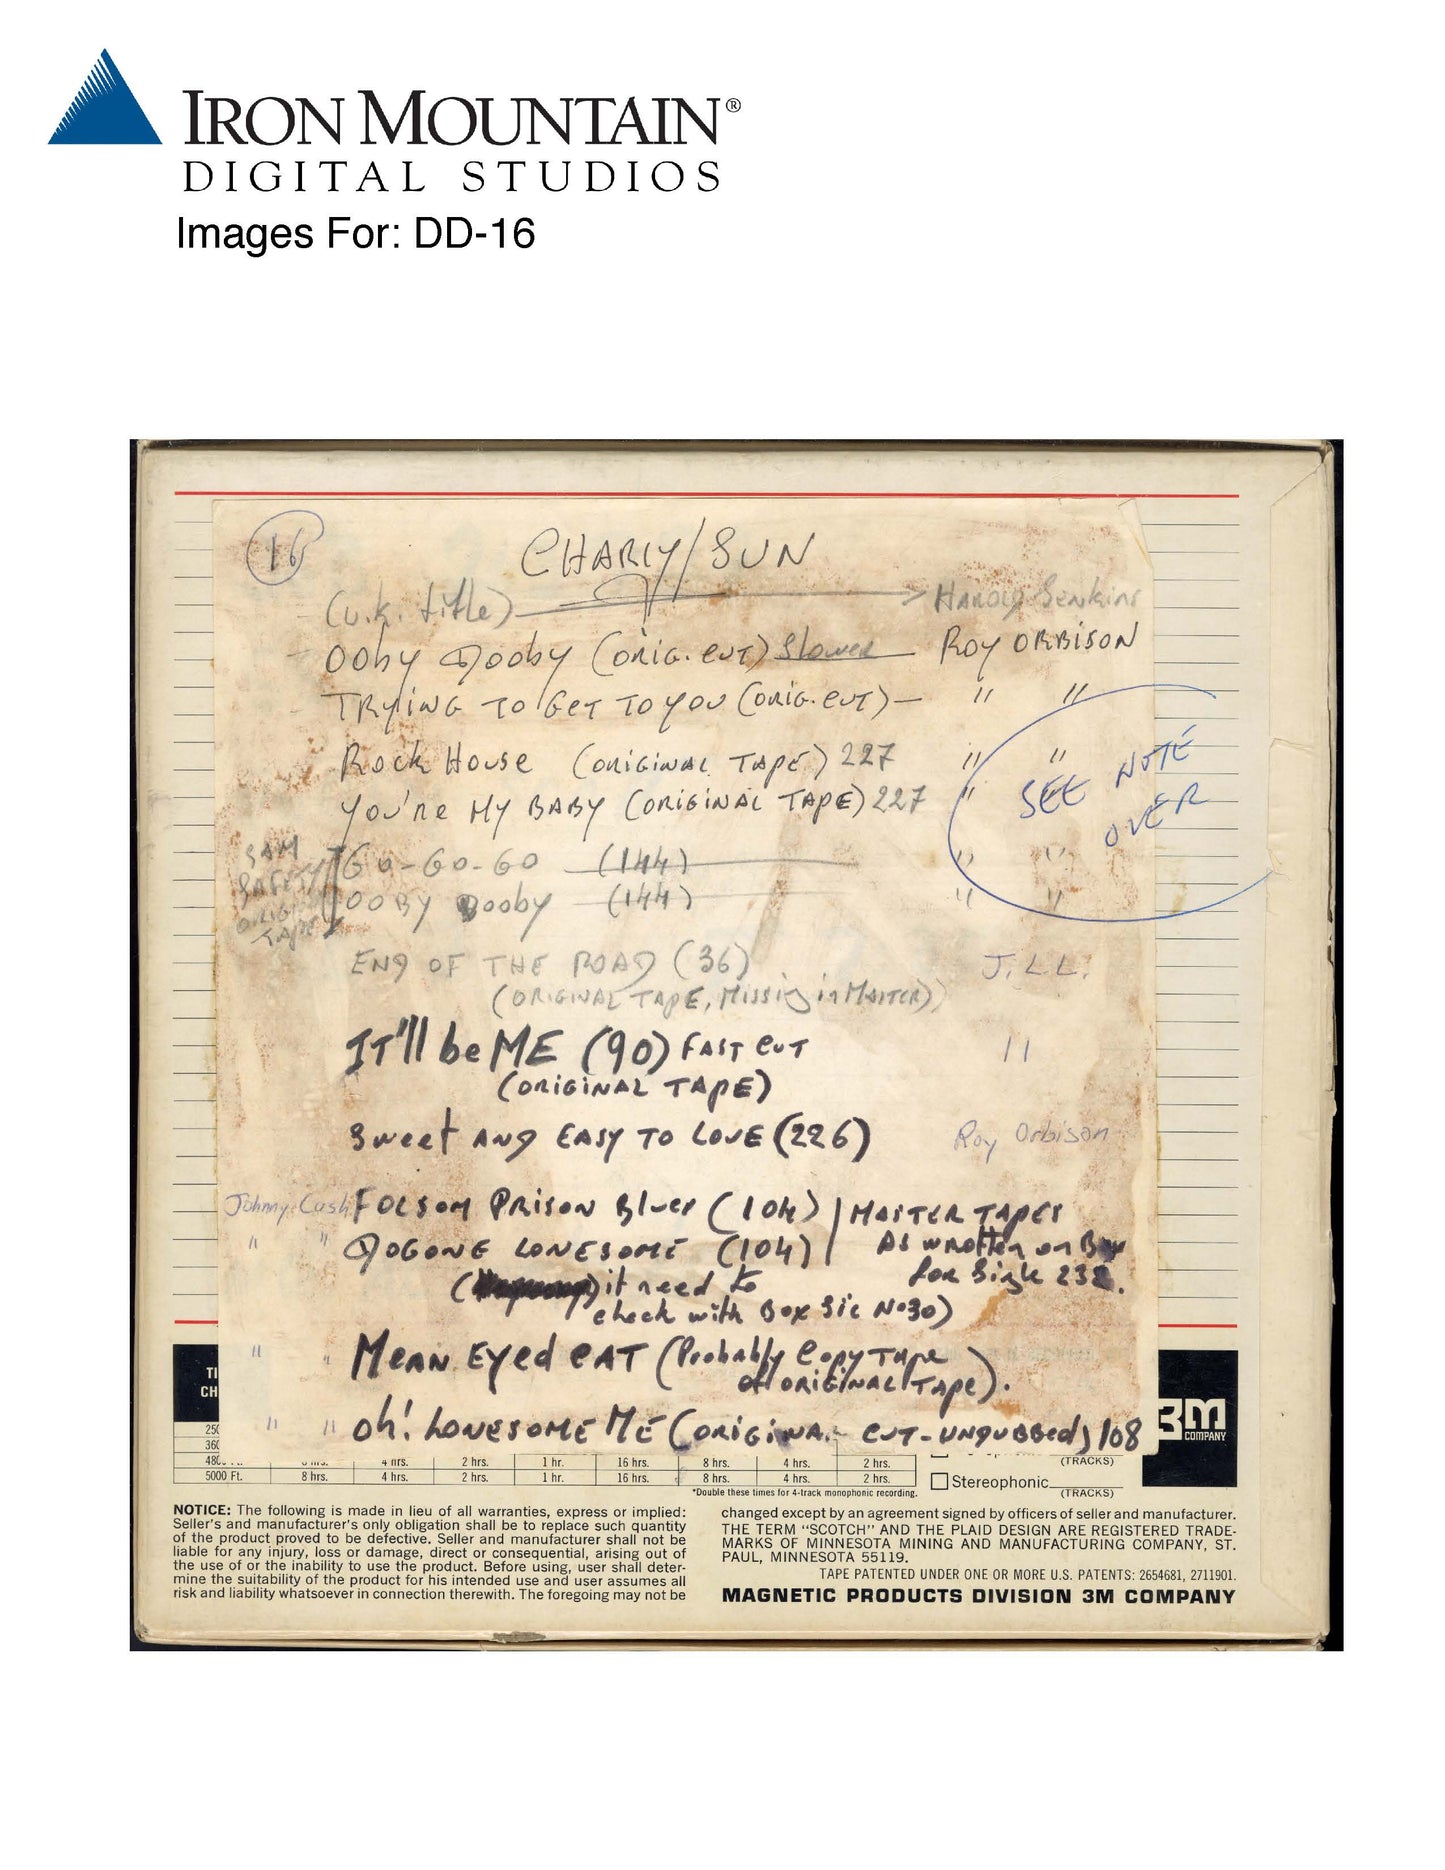 IRON MOUNTAIN®
DIGITAL STUDIOS
Images For: DD-16
16
CHARLY/SUN
(U.K. title) Harold Jenkins
OOby Dooby (ORIG. CUT) Slower ROY ORBISON
TRYING TO GET TO YOU (ORIG. CUT) — " "
Rock House (ORIGINAL TAPE) 227 " "
YOU'RE MY BABY (ORIGINAL TAPE) 227 "
SEE NOTE
OVER
SAM
SAFETY
ORIG
TAPE
GO-GO-GO (144) " "
OOBY Dooby (144) " "
END OF THE ROAD (36) J.L.L.
(ORIGINAL TAPE, Missing in MASTER)
IT'll be ME (90) FAST CUT "
(ORIGINAL TAPE)
Sweet AND EASY TO LOVE (226) Roy Orbison
Johnny Cash FOLSOM PRISON Blues (104) MASTER TAPES
" " DOGONE LONESOME (104) As written on Box
for Single 232.
it need to
check with Box Sic No30)
" " MEAN EYED CAT (Probably COPY TAPE
of ORIGINAL TAPE).
" " Oh! LONESOME ME (ORIGINAL CUT-UNDUBBED) 108
TI
CH
250
360
480 4 hrs. 2 hrs. 1 hr. 16 hrs. 8 hrs. 4 hrs. 2 hrs.
(TRACKS)
5000 Ft. 8 hrs. 4 hrs. 2 hrs. 1 hr. 16 hrs. 8 hrs. 4 hrs. 2 hrs.
*Double these times for 4-track monophonic recording.
Stereophonic
(TRACKS)
3M
COMPANY
NOTICE: The following is made in lieu of all warranties, express or implied:
Seller's and manufacturer's only obligation shall be to replace such quantity
of the product proved to be defective. Seller and manufacturer shall not be
liable for any injury, loss or damage, direct or consequential, arising out of
the use of or the inability to use the product. Before using, user shall deter-
mine the suitability of the product for his intended use and user assumes all
risk and liability whatsoever in connection therewith. The foregoing may not be
changed except by an agreement signed by officers of seller and manufacturer.
THE TERM "SCOTCH" AND THE PLAID DESIGN ARE REGISTERED TRADE-
MARKS OF MINNESOTA MINING AND MANUFACTURING COMPANY, ST.
PAUL, MINNESOTA 55119.
TAPE PATENTED UNDER ONE OR MORE U.S. PATENTS: 2654681, 2711901.
MAGNETIC PRODUCTS DIVISION 3M COMPANY